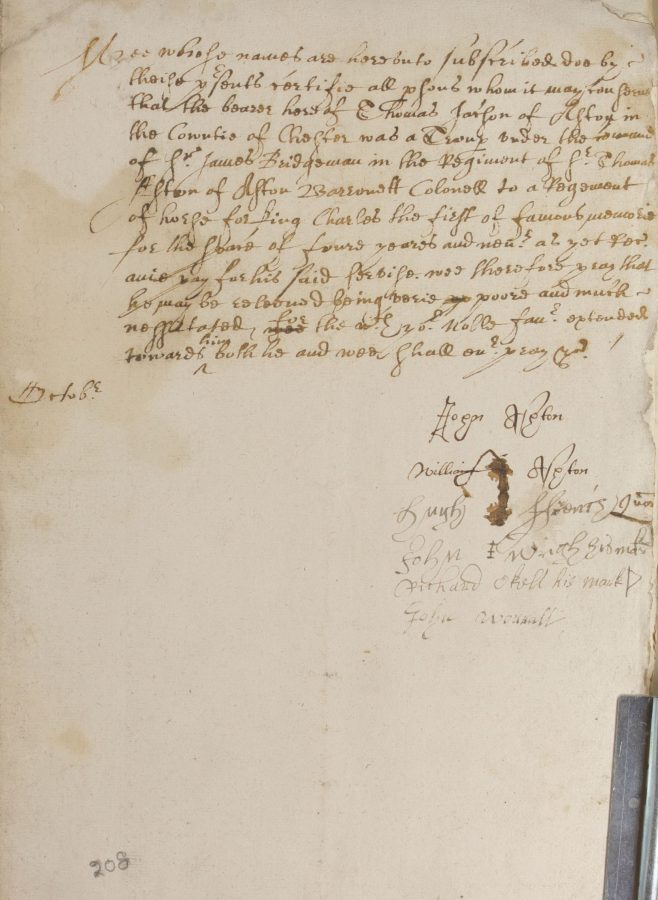 Wee whose names are hereunto subscribed doe by
theise prsents certifie all psons whom it may conserne
that the bearer hereof Thomas Jacson of Aston in
the Countie of Chester was a Troup under the comand
of Sr James Bridgeman in the Regiment of Sr Thomas
Aston of Aston Barronett Colonell to a Regement
of horse for king Charles the first of famous memorie
for the space of foure yeares and nevr as yet Rec.
anie pay for his said servise. wee therefore pray that
he may be releeved being verie poore and much
nessitated, for the wch yor Noble favr extended
towards him both he and wee shall evr pray &c.
Octobr
John Aston
William Aston
Hugh
John Wright his mark
Richard Okell his mark
John Worrall
208